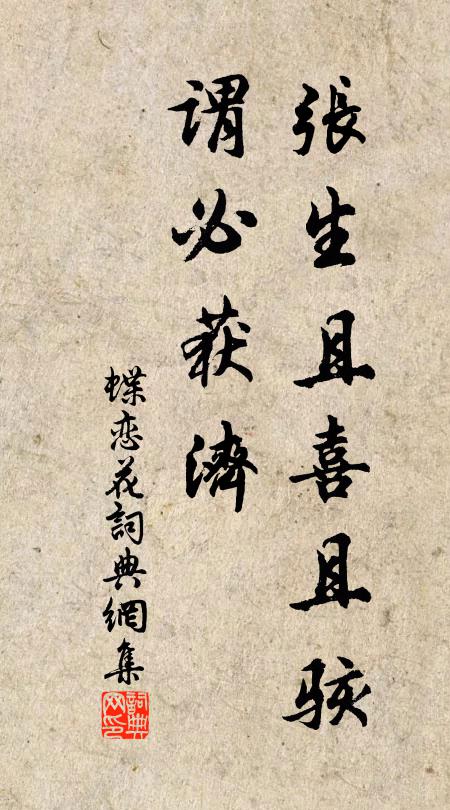 張生且喜且駭
謂必获濟
蝶恋花詞典網集
詞典网印